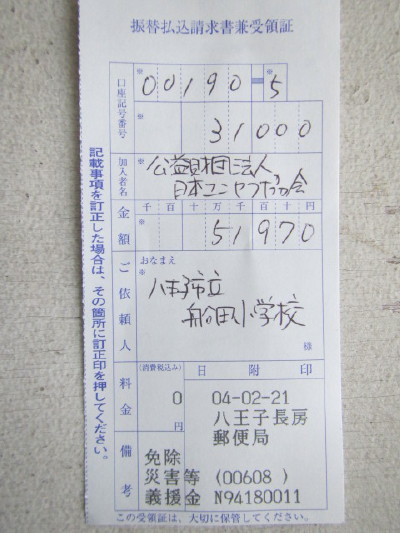 振替払込請求書兼受領証
口座記号番号
※ 00190 = ※ 5
※ 31000
加入者名
※ 公益財団法人
日本ユニセフ協会
金額
千百十万千百十円
※ 51970
ご依頼人
おなまえ
※ 八王子市立
船田小学校
様
料金
(消費税込み)
0
円
日附印
04-02-21
八王子長房
郵便局
備考
免除
災害等 (00608 )
義援金 N94180011
この受領証は、大切に保管してください。
記載事項を訂正した場合は、その箇所に訂正印を押してください。